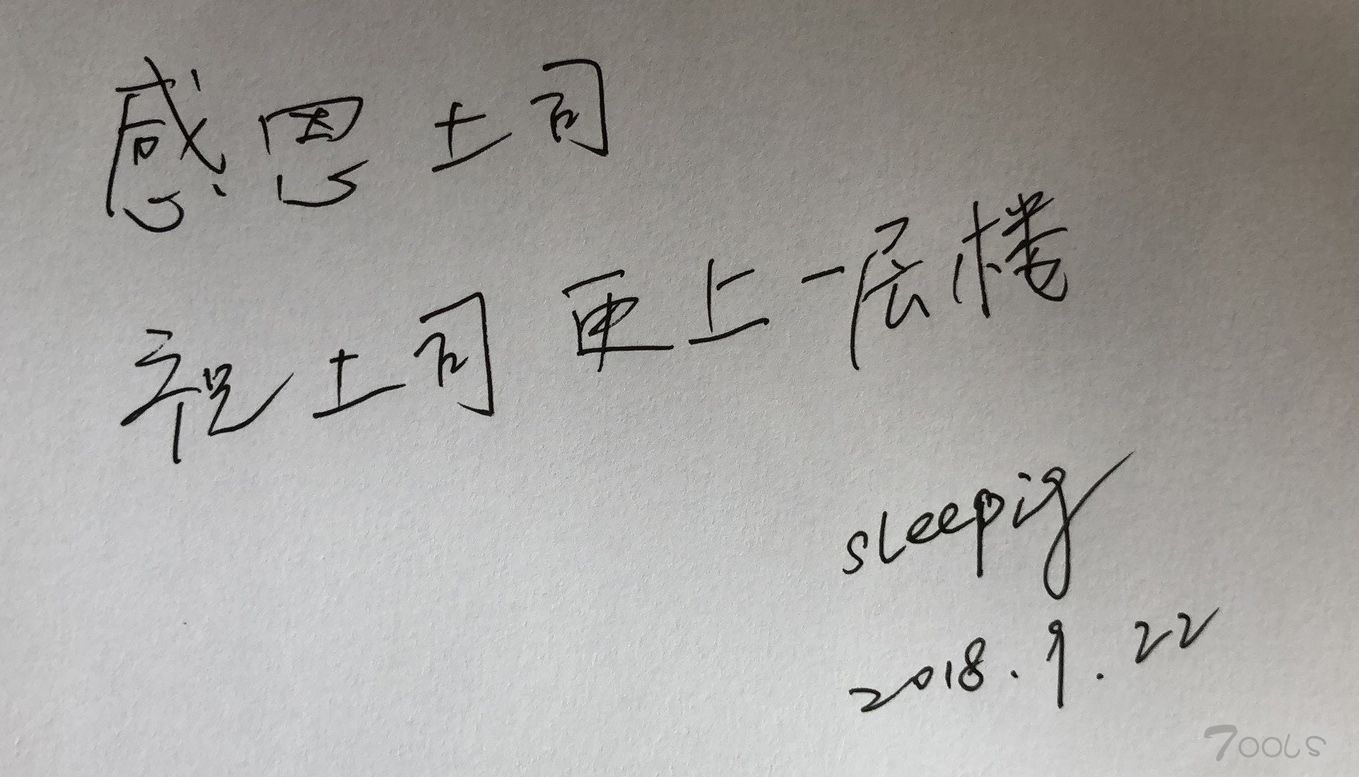 感恩土司
祝土司更上一层楼
sleepig
2018.9.22
7OOLS